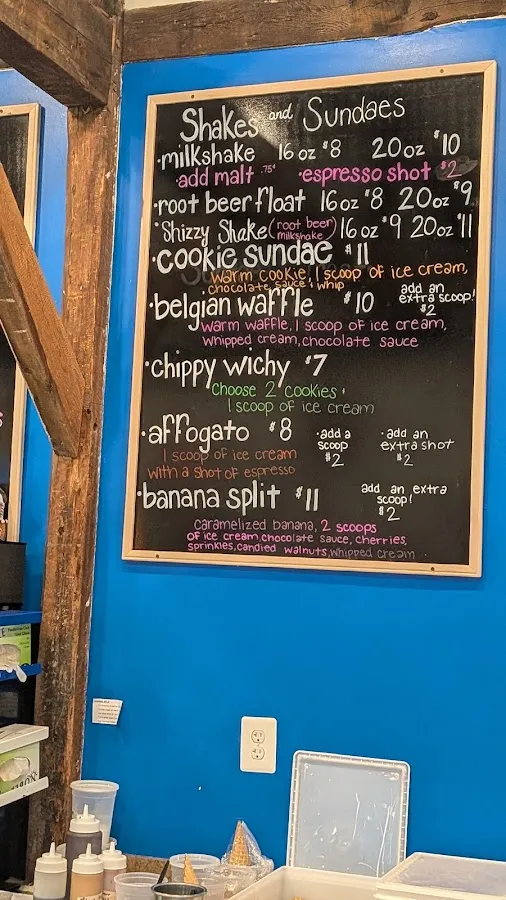 Shakes and Sundaes
·milkshake 16oz $8 20oz $10
·add malt .75¢ ·espresso shot $2
·root beer float 16oz $8 20oz $9
·Shizzy Shake (root beer milkshake) 16oz $9 20oz $11
·cookie sundae $11
warm cookie, 1 scoop of ice cream,
chocolate sauce, whip
·belgian waffle $10
add an
extra scoop!
$2
warm waffle, 1 scoop of ice cream,
whipped cream, chocolate sauce
·chippy wichy $7
choose 2 cookies,
1 scoop of ice cream
·affogato $8
·add a
scoop
$2
·add an
extra shot
$2
1 scoop of ice cream
with a shot of espresso
·banana split $11
add an extra
scoop!
$2
caramelized banana, 2 scoops
of ice cream, chocolate sauce, cherries,
sprinkles, candied walnuts, whipped cream